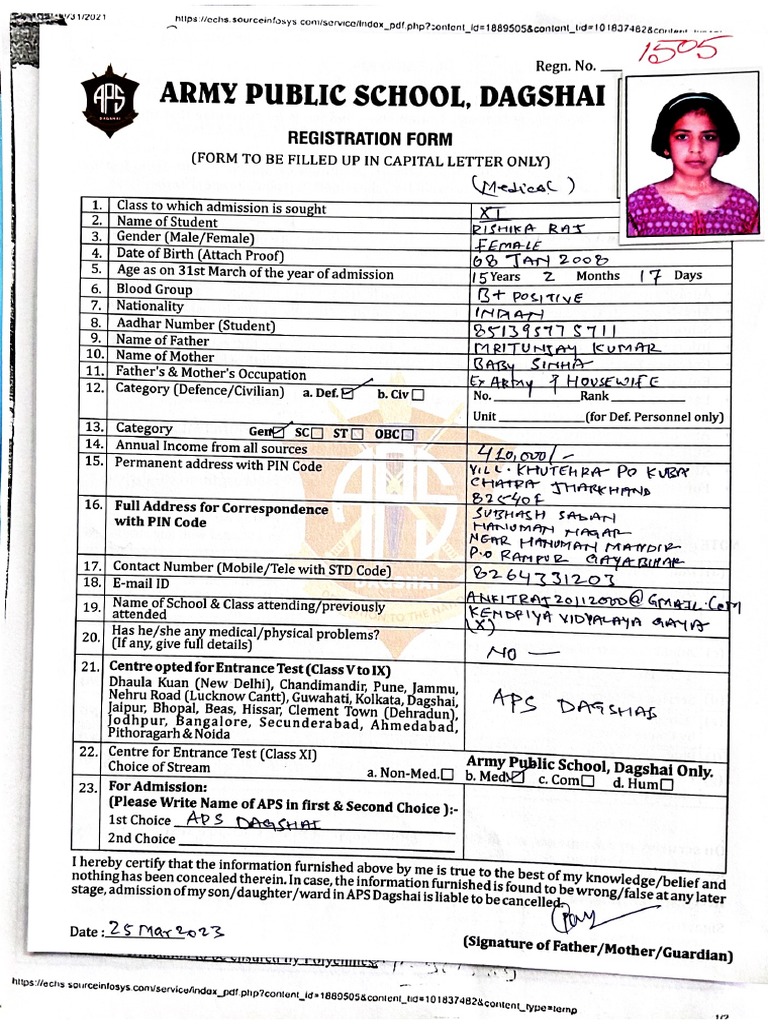 /31/2021
https://echs.sourceinfosys.com/service/index_pdf.php?content_id=1889505&content_tid=101837482&content_
1505
Regn. No. ___
APS
DAGSHAI
ARMY PUBLIC SCHOOL, DAGSHAI
REGISTRATION FORM
(FORM TO BE FILLED UP IN CAPITAL LETTER ONLY)
(Medical)
1. Class to which admission is sought XI
2. Name of Student RISHIKA RAJ
3. Gender (Male/Female) FEMALE
4. Date of Birth (Attach Proof) 08 JAN 2008
5. Age as on 31st March of the year of admission 15 Years 2 Months 17 Days
6. Blood Group B+ POSITIVE
7. Nationality INDIAN
8. Aadhar Number (Student) 851395775711
9. Name of Father MRITUNJAY KUMAR
10. Name of Mother BABY SINHA
11. Father's & Mother's Occupation Ex ARMY & HOUSEWIFE
12. Category (Defence/Civilian) a. Def. ☑ b. Civ ☐ No. ___ Rank ___
Unit ___ (for Def. Personnel only)
13. Category Gen ☑ SC ☐ ST ☐ OBC ☐
14. Annual Income from all sources 410,000/-
15. Permanent address with PIN Code VILL. KHUTEHRA PO KUBA
CHATRA JHARKHAND
16. Full Address for Correspondence SUBHASH SADAN
with PIN Code HANUMAN NAGAR
NEAR HANUMAN MANDIR
P.O RAMPUR GAYA BIHAR
17. Contact Number (Mobile/Tele with STD Code) 8264331203
18. E-mail ID ANKITRAJ20112000@GMAIL.COM
19. Name of School & Class attending/previously KENDRIYA VIDYALAYA GAYA
attended (X)
20. Has he/she any medical/physical problems? NO —
(If any, give full details)
21. Centre opted for Entrance Test (Class V to IX)
Dhaula Kuan (New Delhi), Chandimandir, Pune, Jammu,
Nehru Road (Lucknow Cantt), Guwahati, Kolkata, Dagshai, APS DAGSHAI
Jaipur, Bhopal, Beas, Hissar, Clement Town (Dehradun),
Jodhpur, Bangalore, Secunderabad, Ahmedabad,
Pithoragarh & Noida
22. Centre for Entrance Test (Class XI) Army Public School, Dagshai Only.
Choice of Stream a. Non-Med. ☐ b. Med ☑ c. Com ☐ d. Hum ☐
23. For Admission:
(Please Write Name of APS in first & Second Choice ):-
1st Choice APS DAGSHAI
2nd Choice ___
I hereby certify that the information furnished above by me is true to the best of my knowledge/belief and
nothing has been concealed therein. In case, the information furnished is found to be wrong/false at any later
stage, admission of my son/daughter/ward in APS Dagshai is liable to be cancelled.
Date : 25 Mar 2023
(Signature of Father/Mother/Guardian)
https://echs.sourceinfosys.com/service/index_pdf.php?content_id=1889505&content_tid=101837482&content_type=temp
1/2